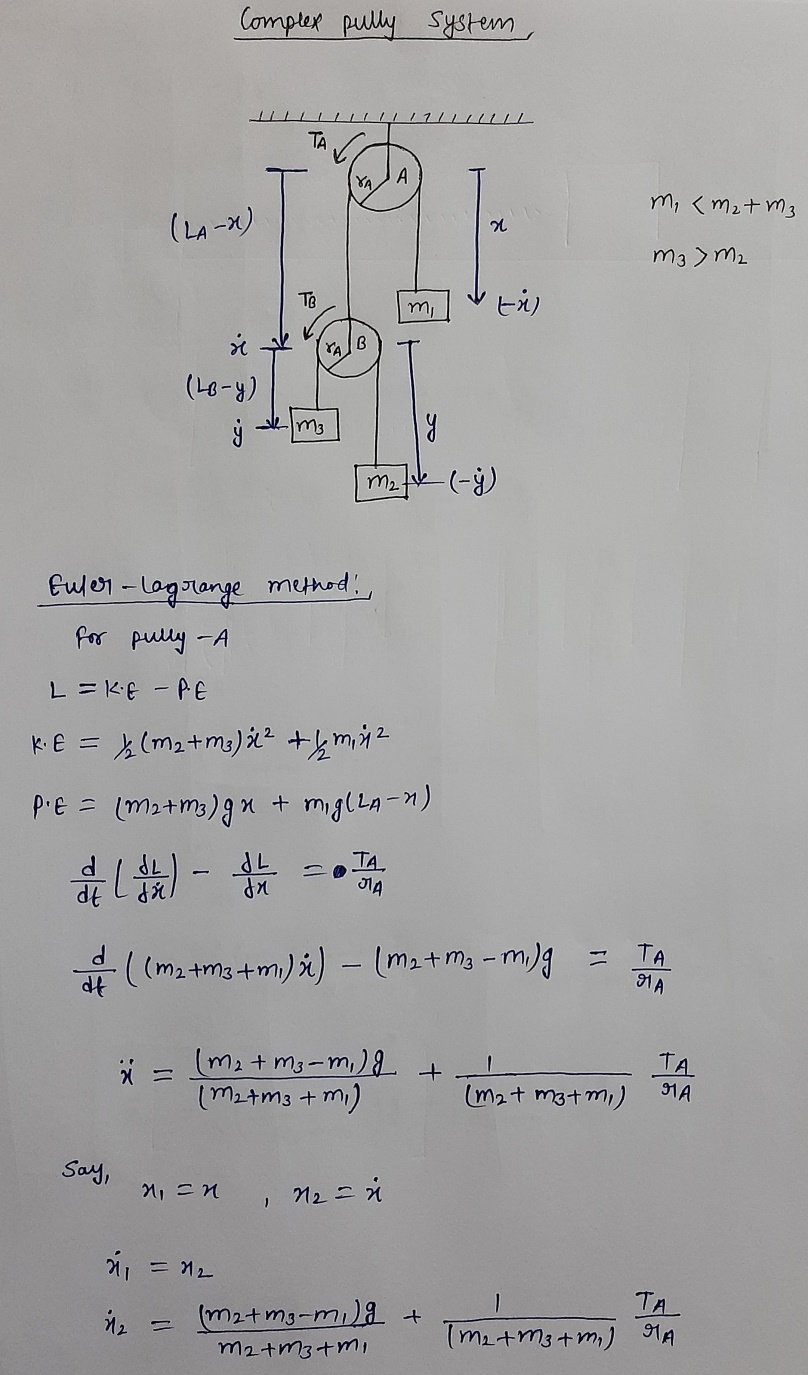 Complex pully system
TA
rA A
(LA-x)
x
m1 < m2+m3
m3 > m2
TB
m1 (-ẋ)
ẋ
rA B
(LB-y)
ẏ m3
y
m2 (-ẏ)
Euler-Lagrange method:
for pully -A
L = K.E - P.E
K.E = 1/2 (m2+m3)ẋ² + 1/2 m1ẋ²
P.E = (m2+m3)gx + m1g(LA-x)
d/dt (dL/dẋ) - dL/dx = TA/rA
d/dt ((m2+m3+m1)ẋ) - (m2+m3-m1)g = TA/rA
ẍ = (m2+m3-m1)g/(m2+m3+m1) + 1/(m2+m3+m1) TA/rA
Say,
x1 = x , x2 = ẋ
ẋ1 = x2
ẋ2 = (m2+m3-m1)g/m2+m3+m1 + 1/(m2+m3+m1) TA/rA